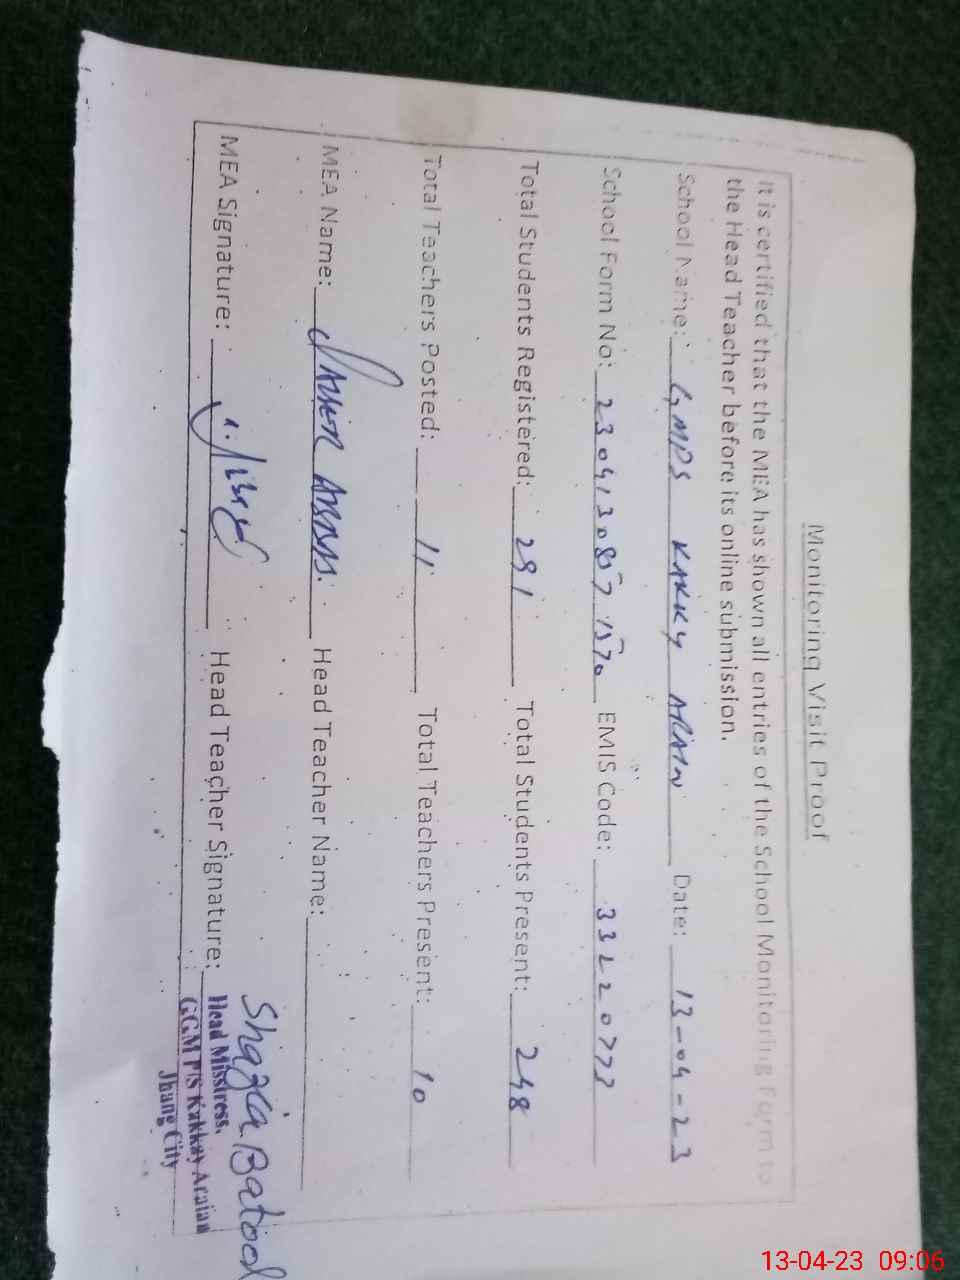 Monitoring Visit Proof
It is certified that the MEA has shown all entries of the School Monitoring Form to
the Head Teacher before its online submission.
School Name: GMPS KAKKY ARAIN Date: 13-04-23
School Form No: EMIS Code: 33220773
Total Students Registered: 291 Total Students Present: 248
Total Teachers Posted: 11 Total Teachers Present: 10
MEA Name: ABBAS. Head Teacher Name:
MEA Signature: Head Teacher Signature: Shazia Batool
Head Misstress,
GGM P/S Kakkay Araian
Jhang City
13-04-23 09:06